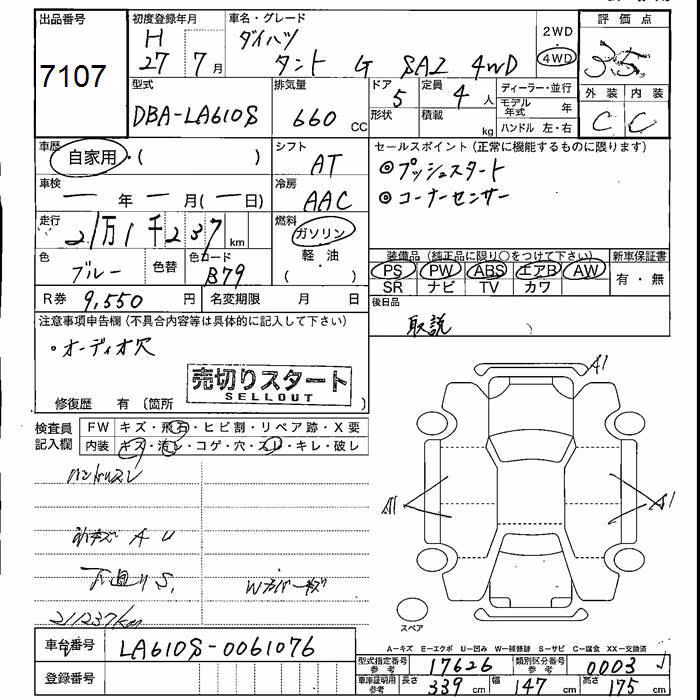 出品番号
7107
初度登録年月
H
27 7月
車名・グレード
ダイハツ
タント G SA2 4WD
2WD
4WD
評価点
3.5
外装 内装
C C
型式
DBA-LA610S
排気量
660 CC
ドア 5
形状
定員 4人
積載 kg
ディーラー・並行
モデル年式 年
ハンドル 左・右
車歴
自家用・( )
シフト
AT
セールスポイント(正常に機能するものに限ります)
◎プッシュスタート
◎コーナーセンサー
車検
ー年ー月(ー日)
冷房
AAC
走行
21万1千237km
燃料
ガソリン
軽・油
( )
色
ブルー
色替
色コード
B79
装備品(純正品に限り○をつけて下さい)
PS PW ABS エアB AW
SR ナビ TV カワ
新車保証書
有・無
R券 9,550 円
名変期限 月 日
後日品
取説 )
注意事項申告欄(不具合内容等は具体的に記入して下さい)
・オーディオ穴
売切りスタート
SELLOUT
修復歴 有(箇所 )
検査員記入欄
FW キズ・飛石・ヒビ割・リペア跡・X要
内装 キズ・汚レ・コゲ・穴・スレ・キレ・破レ
ハンドルスレ
小キズ A U
下廻りS,
Wカバーキズ
211237km
A1
A1
A1
スペア
A-キズ E-エクボ U-凹み W-補修跡 S-サビ C-腐食 XX-交換済
車台番号
LA610S-0061076
登録番号
型式指定番号参考 17626
類別区分番号参考 0003
車庫証明用参考
長さ 339 cm
幅 147 cm
高さ 175 cm